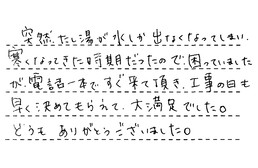 突然、たし湯が水しか出なくなってしまい、
寒くなってきた時期だったので、困っていました
が、電話一本で、すぐ来て頂き、工事の日も
早く決めてもらえて、大満足でした。
どうも ありがとうございました。